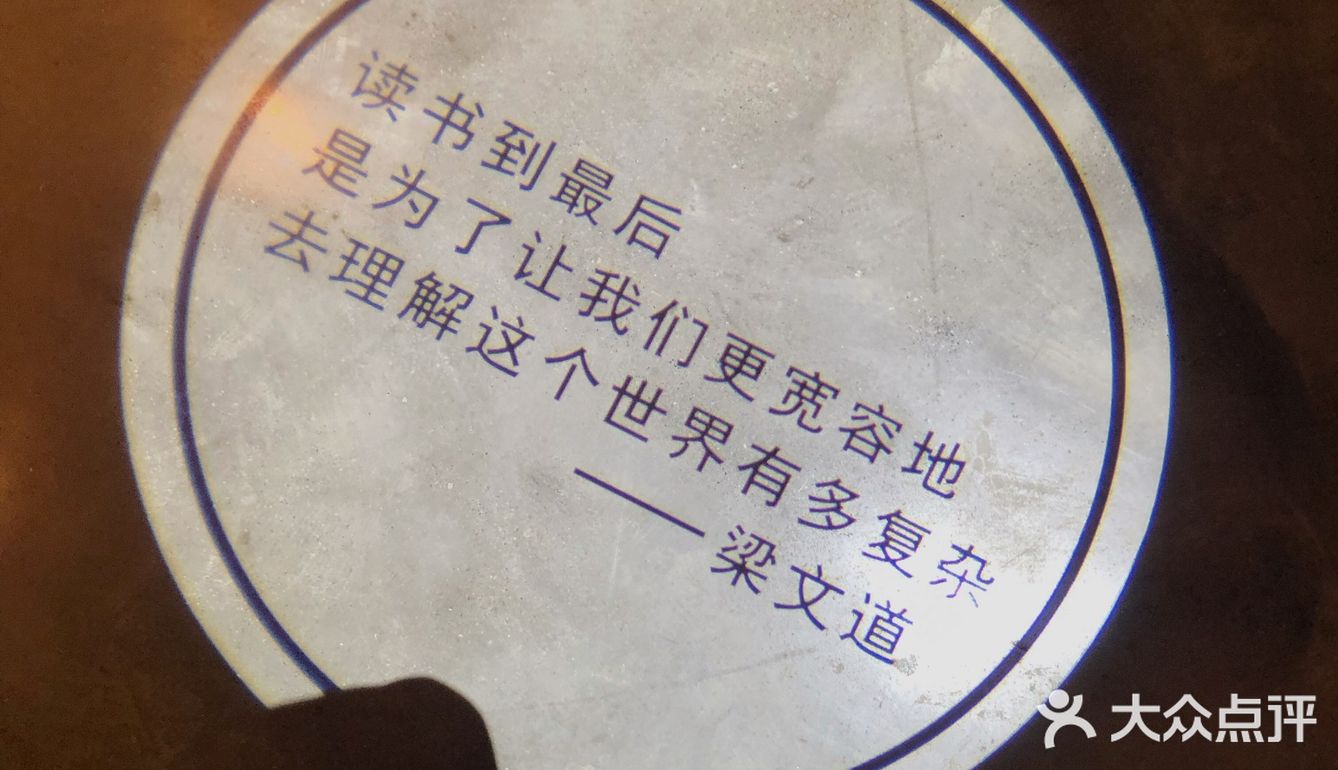 读书到最后
是为了让我们更宽容地
去理解这个世界有多复杂
——梁文道
大众点评